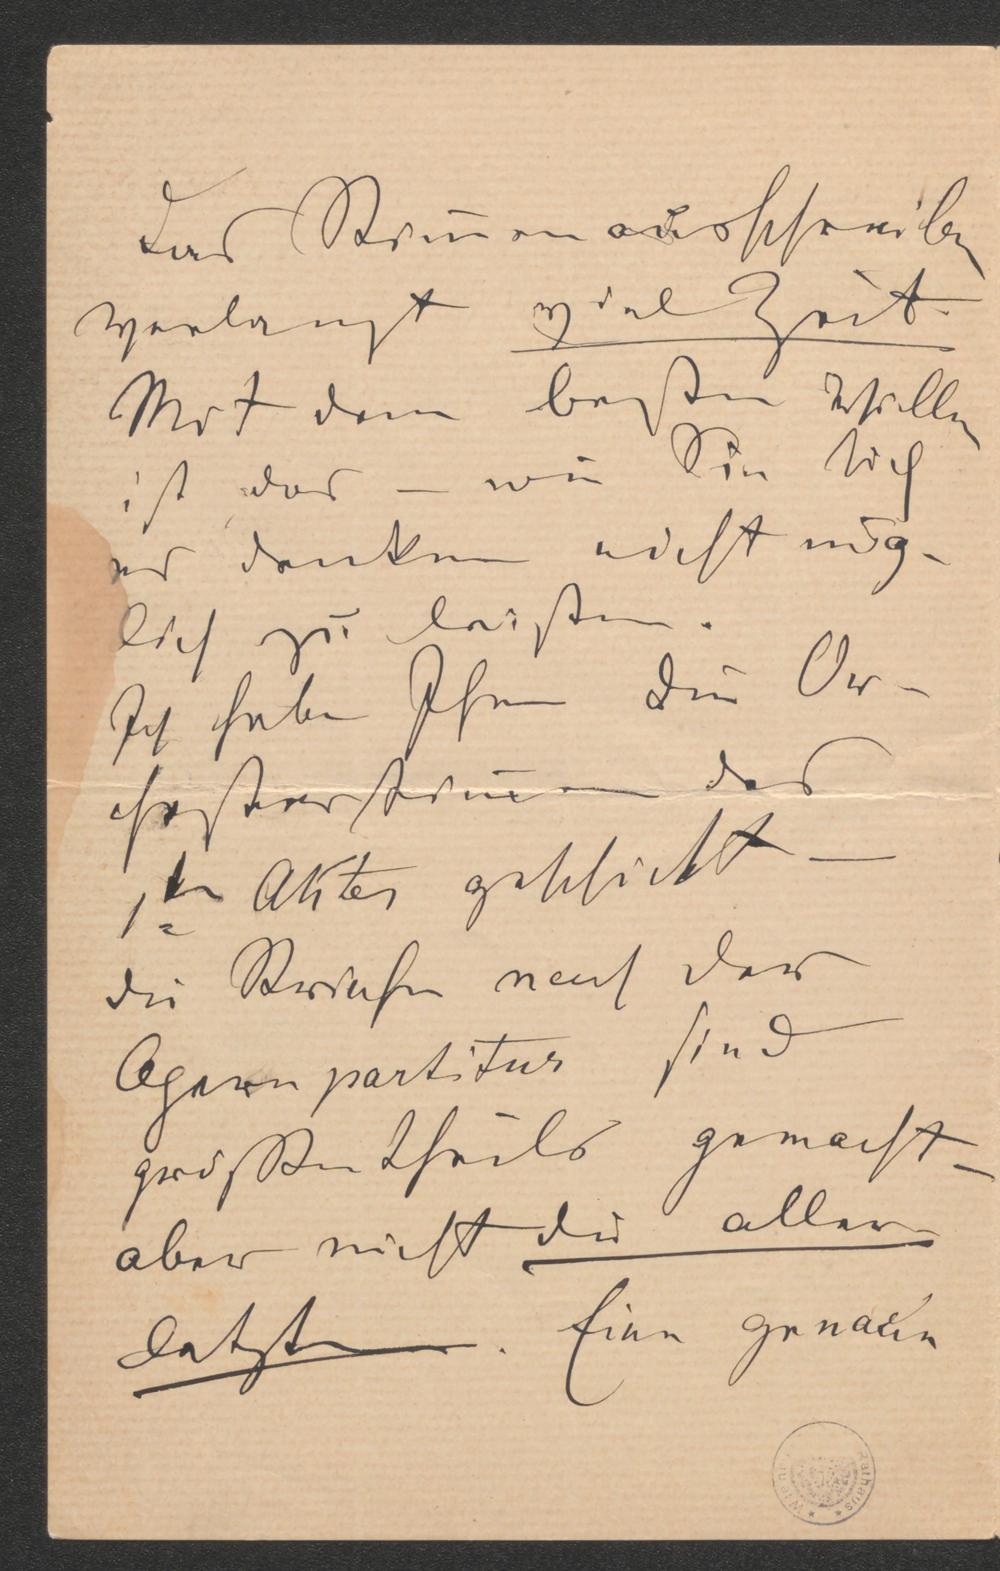 Das Stimmenausschreiben
verlangt viel Zeit.
Mit dem besten Willen
ist das – wie Sie sich
es denken nicht mög-
lich zu leisten.
Ich habe Ihnen die Or-
chesterstimmen des
1ten Aktes geschickt –
die Striche nach der
Opernpartitur sind
größtentheils gemacht –
aber nicht die aller
letzten. Eine genaue
Wie Rathaus